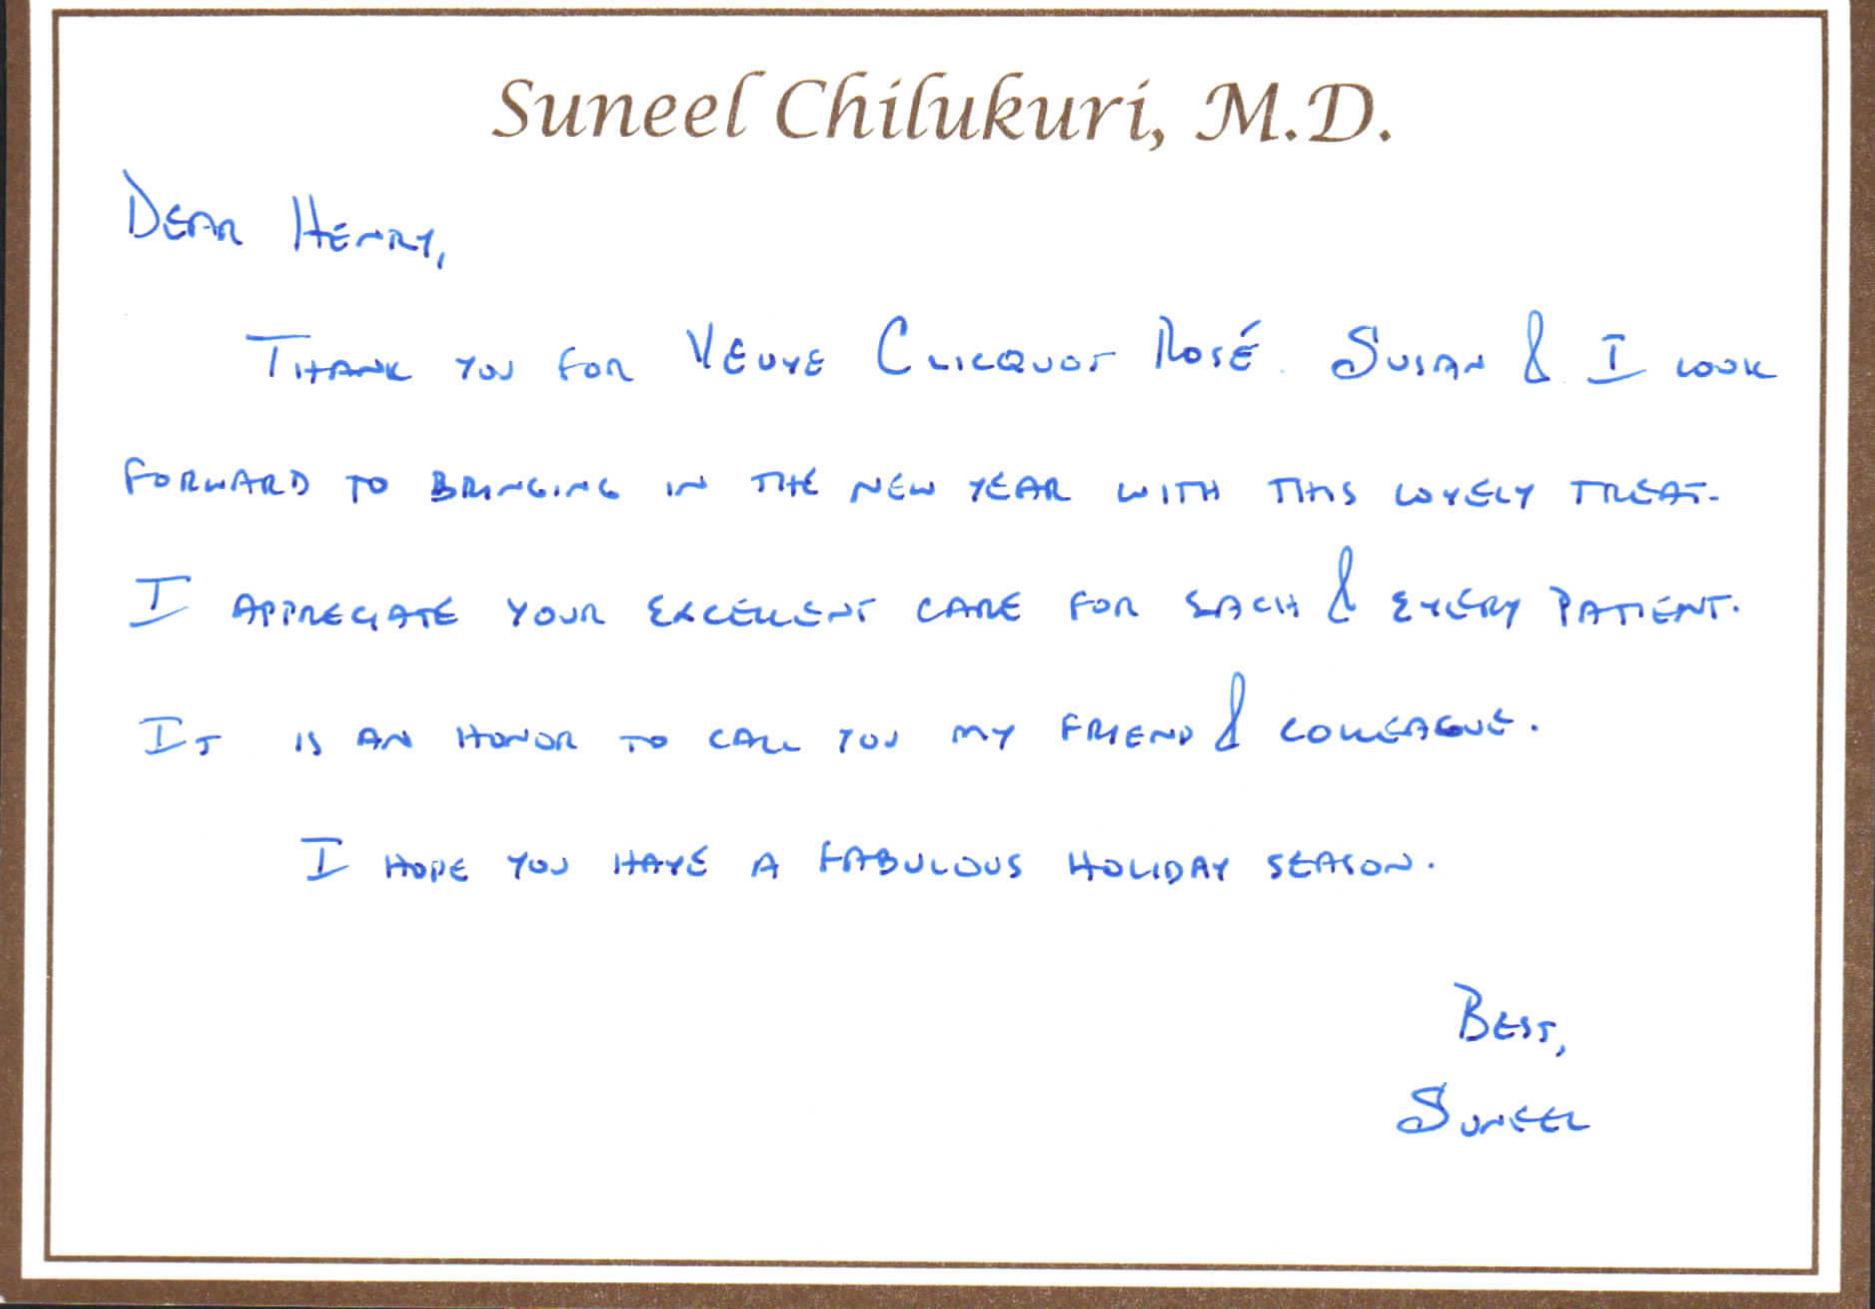 Suneel Chilukuri, M.D.
DEAR HENRY,
THANK YOU FOR VEUVE CLICQUOT ROSÉ. SUSAN & I LOOK
FORWARD TO BRINGING IN THE NEW YEAR WITH THIS LOVELY TREAT.
I APPRECIATE YOUR EXCELLENT CARE FOR EACH & EVERY PATIENT.
IT IS AN HONOR TO CALL YOU MY FRIEND & COLLEAGUE.
I HOPE YOU HAVE A FABULOUS HOLIDAY SEASON.
BEST,
SUNEEL